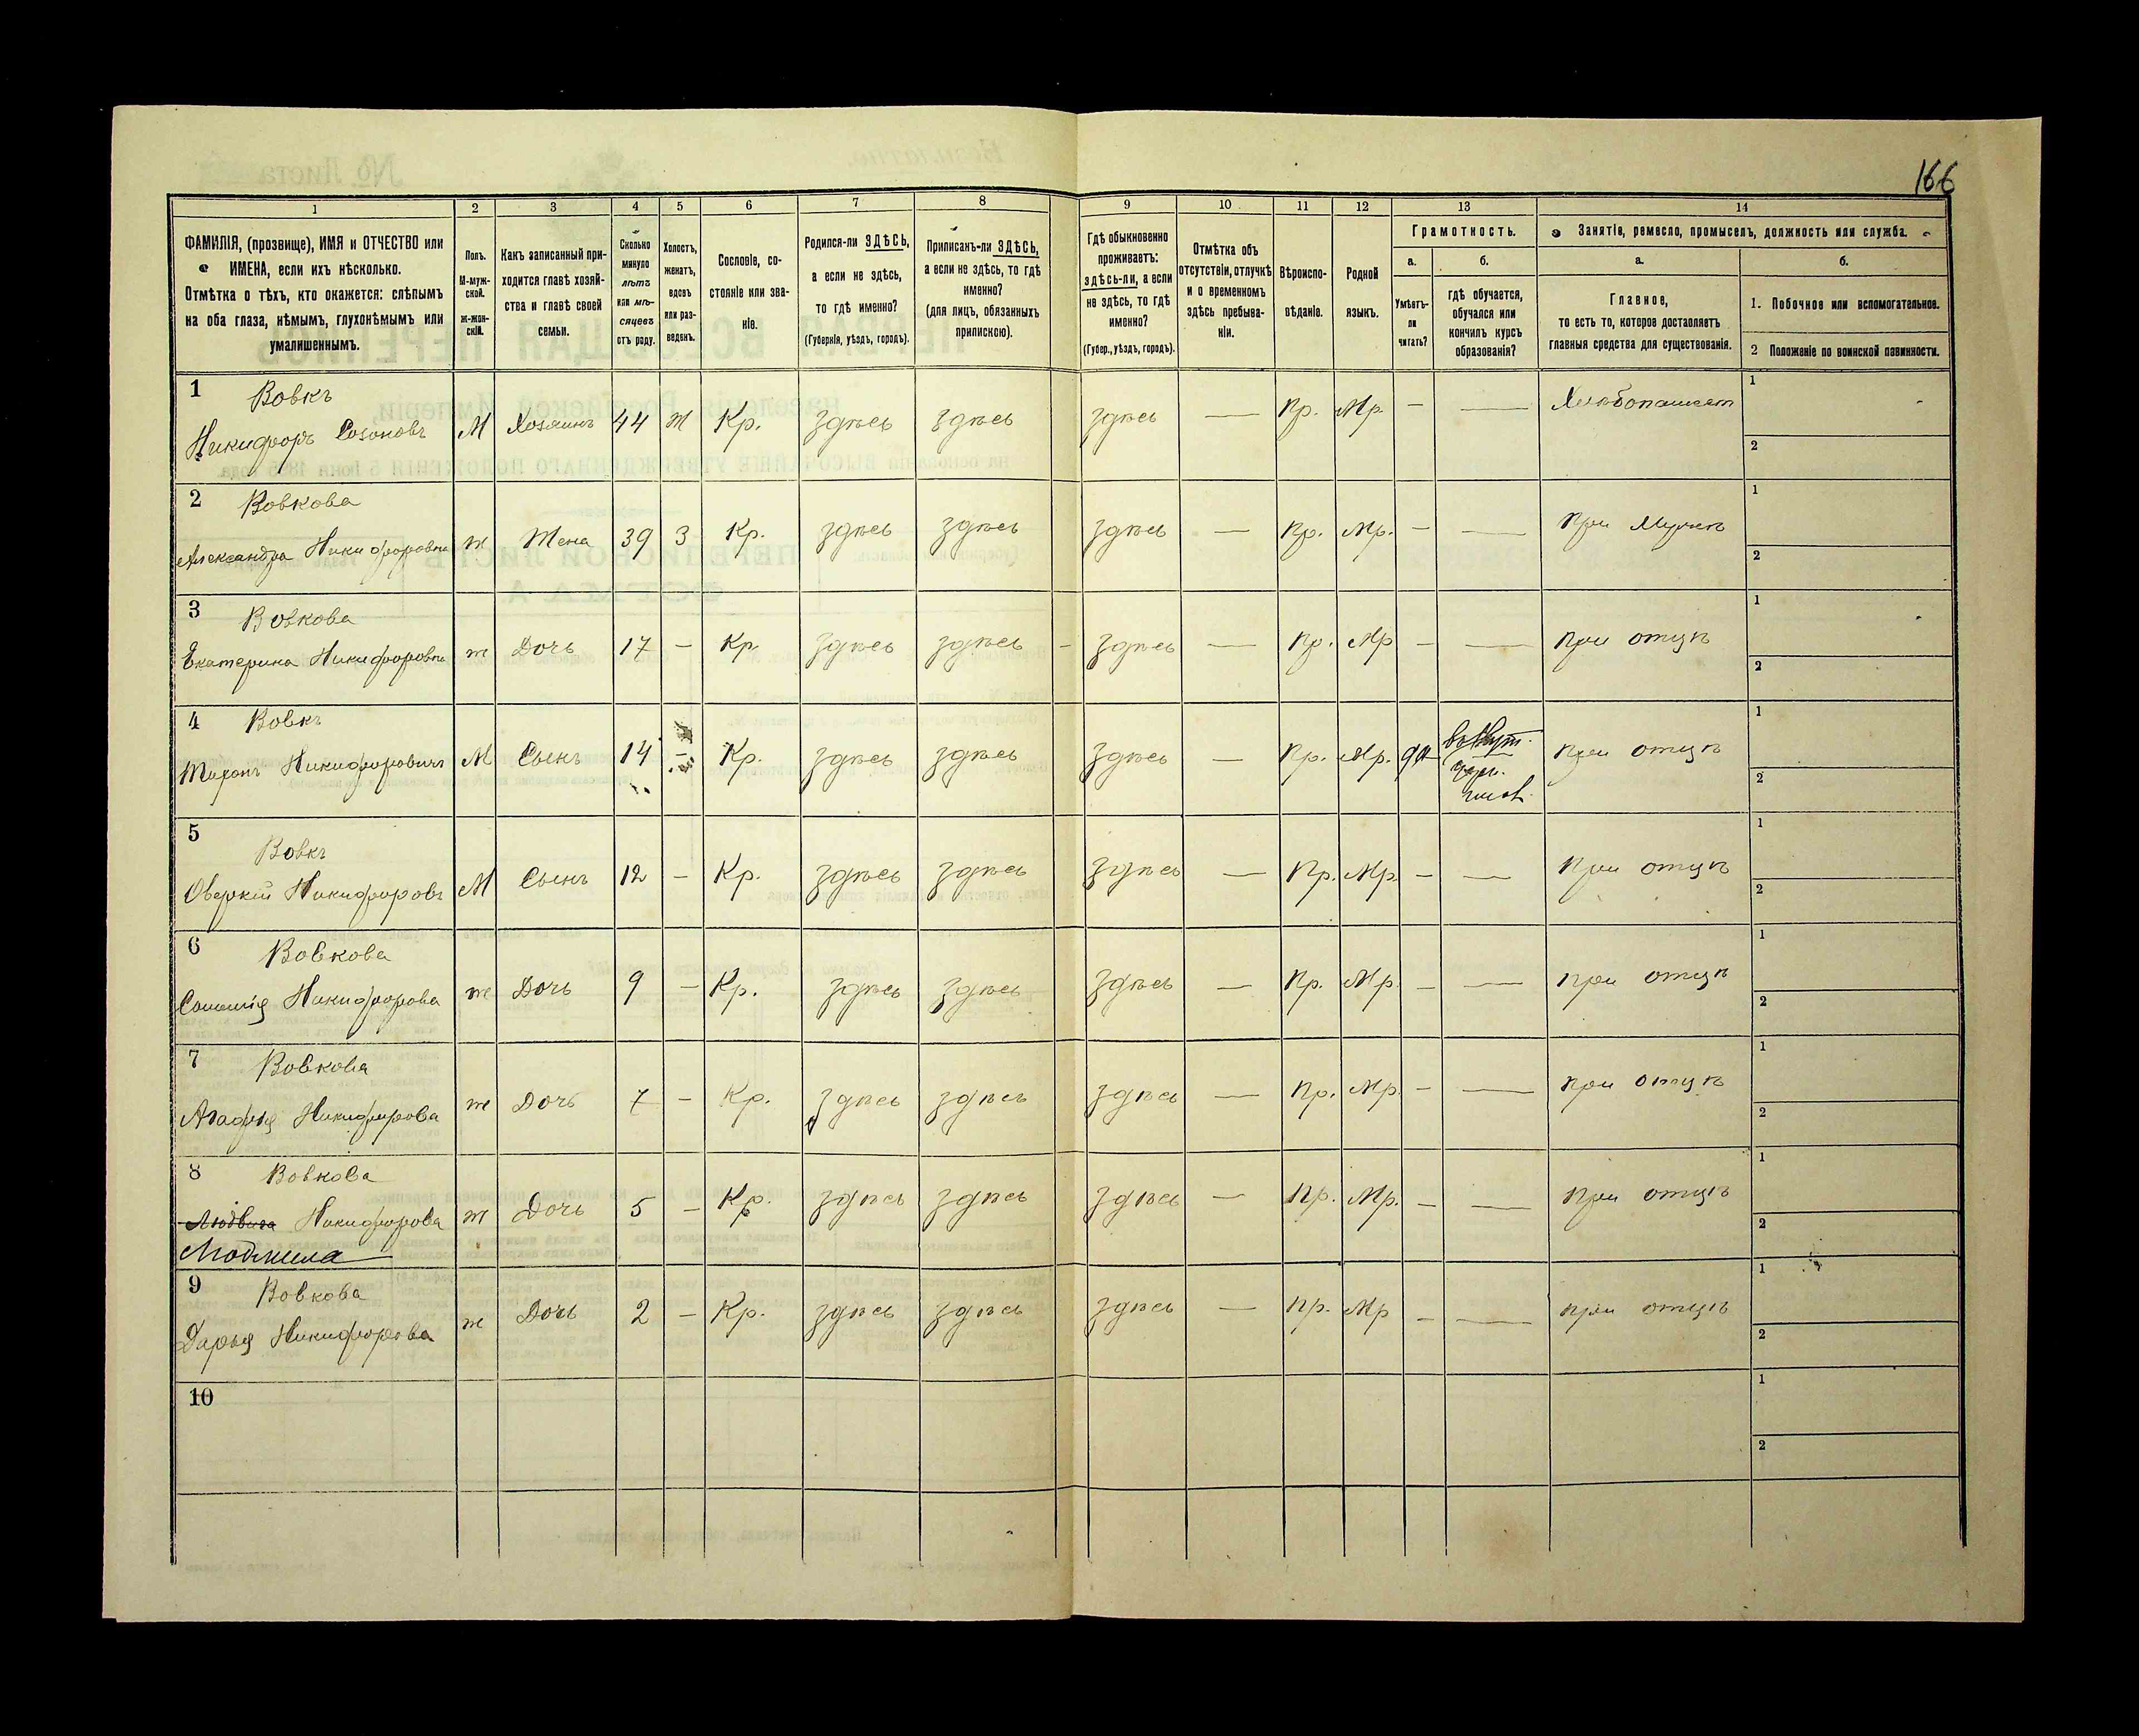 166
1 2 3 4 5 6 7 8 9 10 11 12 13 14
ФАМИЛІЯ, (прозвище), ИМЯ и ОТЧЕСТВО или
ИМЕНА, если ихъ нѣсколько.
Отмѣтка о тѣхъ, кто окажется: слѣпымъ
на оба глаза, нѣмымъ, глухонѣмымъ или
умалишеннымъ.
Полъ.
М-муж-
ской.
ж-жен-
скій.
Какъ записанный при-
ходится главѣ хозяй-
ства и главѣ своей
семьи.
Сколько
минуло
лѣтъ
или мѣ-
сяцевъ
отъ роду.
Холостъ,
женатъ,
вдовъ
или раз-
веденъ.
Сословіе, со-
стояніе или зва-
ніе.
Родился-ли ЗДѢСЬ,
а если не здѣсь,
то гдѣ именно?
(Губернія, уѣздъ, городъ).
Приписанъ-ли ЗДѢСЬ,
а если не здѣсь, то гдѣ
именно?
(для лицъ, обязанныхъ
припискою).
Гдѣ обыкновенно
проживаетъ:
здѣсь-ли, а если
не здѣсь, то гдѣ
именно?
(Губер., уѣздъ, городъ).
Отмѣтка объ
отсутствіи, отлучкѣ
и о временномъ
здѣсь пребыва-
ніи.
Вѣроиспо-
вѣданіе.
Родной
языкъ.
Грамотность.
а.
Умѣетъ-
ли
читать?
б.
гдѣ обучается,
обучался или
кончилъ курсъ
образованія?
Занятіе, ремесло, промыселъ, должность или служба.
а.
Главное,
то есть то, которое доставляетъ
главныя средства для существованія.
б.
1. Побочное или вспомогательное.
2 Положеніе по воинской повинности.
1 Вовкъ
Никифоръ Созоновъ М Хозяинъ 44 ж Кр. здѣсь здѣсь здѣсь — Пр. Мр. — — Хлѣбопашест 1
2
2 Вовкова
Александра Никифоровна ж Жена 39 З Кр. здѣсь здѣсь здѣсь — Пр. Мр. — — При Мужѣ 1
2
3 Вовкова
Екатерина Никифоровна ж Дочь 17 — Кр здѣсь здѣсь — здѣсь — Пр. Мр — — При отцѣ 1
2
4 Вовкъ
Миронъ Никифоровичъ М Сынъ 14 — Кр. здѣсь здѣсь здѣсь — Пр. Мр. да При отцѣ 1
2
5 Вовкъ
Оверкій Никифоровъ М Сынъ 12 — Кр. здѣсь здѣсь здѣсь — Пр. Мр. — — При отцѣ 1
2
6 Вовкова
Соломія Никифорова ж Дочь 9 — Кр. здѣсь здѣсь здѣсь — Пр. Мр. — — при отцѣ 1
2
7 Вовкова
Агафья Никифорова ж Дочь 7 — Кр. здѣсь здѣсь здѣсь — Пр. Мр. — — при отцѣ 1
2
8 Вовкова
Людвига Никифорова ж Дочь 5 — Кр. здѣсь здѣсь здѣсь — Пр. Мр. — — При отцѣ 1
Людмила 2
9 Вовкова
Дарья Никифорова ж Дочь 2 — Кр. здѣсь здѣсь здѣсь — Пр. Мр — — при отцѣ 1
2
10 1
2